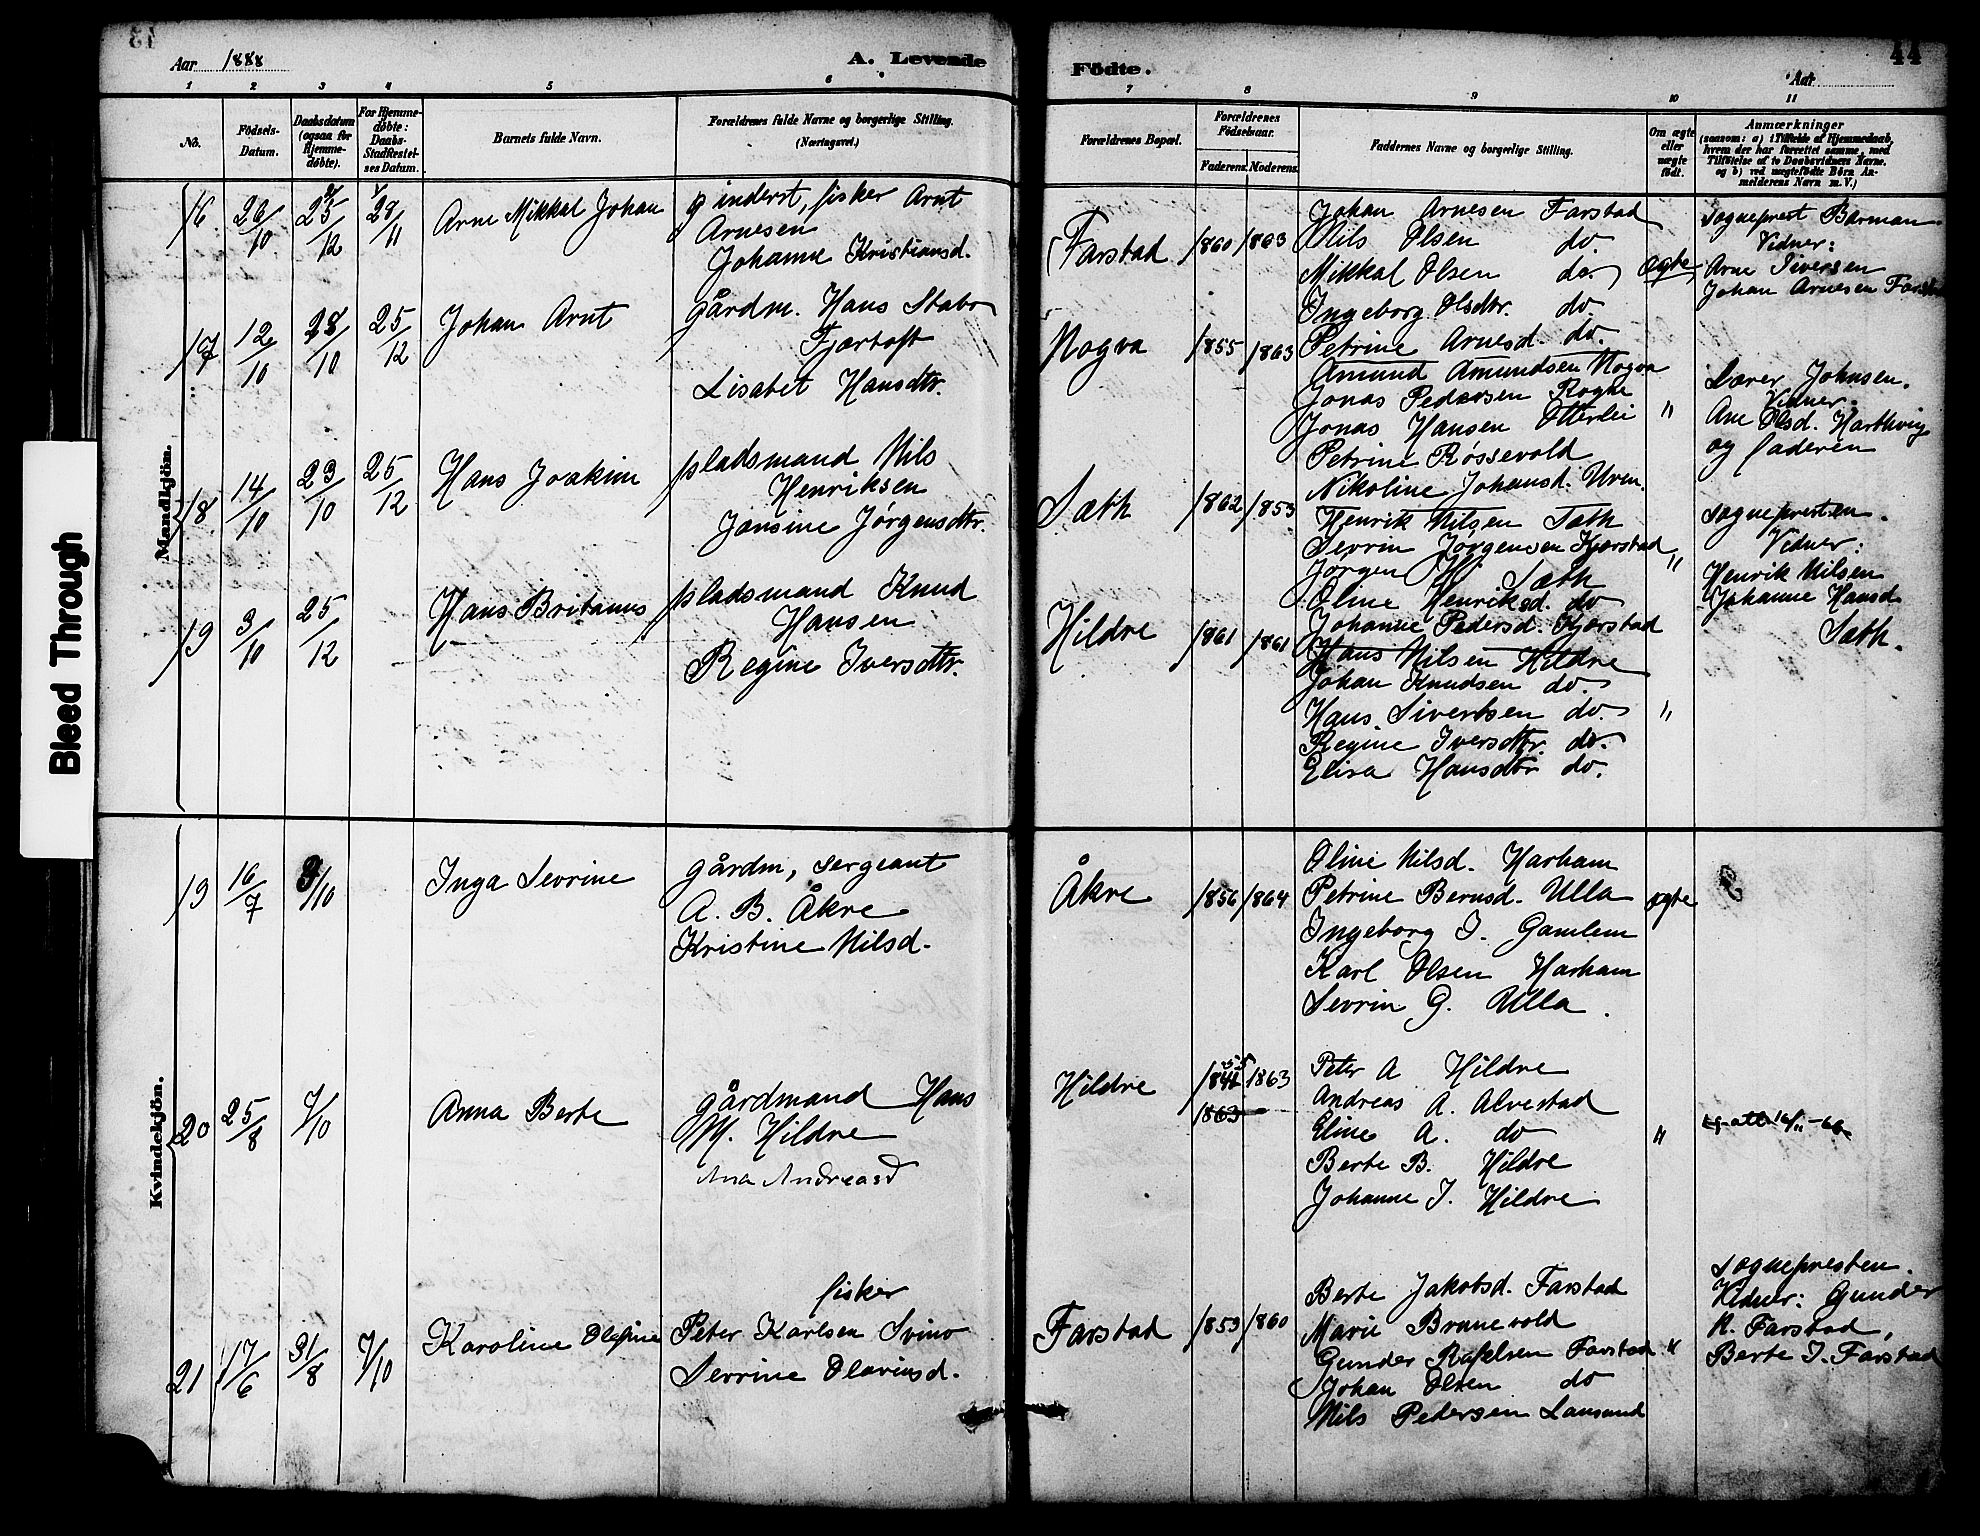 43
Aar 1888
A. Levende
1 2 3 4 5 6
No.
Födsels-
Datum.
Daabsdatum
(ogsaa for
Hjemme-
döbte).
For Hjemme-
döbte:
Daabs-
Stadfæstel-
ses Datum.
Barnets fulde Navn.
Forældrenes fulde Navne og borgerlige Stilling.
(Næringsvei.)
Födte.
44
Aar
7 8 9 10 11
Forældrenes Bopæl.
Forældrenes
Födselsaar.
Faderens. Moderens.
Faddernes Navne og borgerlige Stilling.
Om ægte
eller
uægte
födt.
Anmærkninger
(saasom: a) i Tilfælde af Hjemmedaab,
hvem der har forrettet samme, med
Tilföielse af to Daabsvidners Navne,
og b) ved uægtefödte Börn An-
melderens Navn m. V.)
Bleed Through
Mandkjön.
16 26/10 25/12 28/11 Arne Mikkal Johan
inderst, fisker Arnt
Arnesen
Johanne Kristiansd.
Farstad 1860 1863
Johan Arnesen Farstad
Nils Olsen do
Mikkal Olsen do
Ingeborg Olsdtr. do.
Petrine Arnesd. do.
ægte
Sogneprest Barman
Vidner:
Arne Iversen
Johan Arnesen
17 12/10 28/10 25/12 Johan Arnt
gårdm. Hans Stabo
Fjærtoft
Lisabet Hansdtr.
Nogva 1855 1863
Amund Amundsen Nogva
Jonas Pedersen Rogne
Jonas Hansen Otterlei
Petrine Røssevold
Nikoline Johansd. Uren.
"
Lærer Johnsen.
Vidner:
Ane Olsd. Harthvig
og faderen
18 14/10 23/10 25/12 Hans Joakim
pladsmand Nils
Henriksen
Jensine Jørgensdtr.
Sæth 1862 1853
Henrik Nilsen Sæth
Sevrin Jørgensen Kjærstad
Jørgen Sæth
Oline Henriksd. do
Johanne Pedersd. Kjærstad
"
Sognepresten.
Vidner:
Henrik Nilsen
Johanne Hansd
Sæth.
19 3/10 25/12 Hans Britanus
pladsmand Knud
Hansen
Regine Iversdtr.
Hildre 1861 1861
Hans Nilsen Hildre
Johan Knudsen do.
Hans Sivertsen do.
Regine Iversdtr. do.
Elisa Hansdtr do.
"
Kvindekjön.
19 16/7 /10 Inga Sevrine
gårdm, sergeant
A. B. Åkre
Kristine Nilsd.
Åkre 1856 1864
Oline Nilsd. Harham
Petrine Bernsd. Ulla
Ingeborg I. Gamlem
Karl Olsen Harham
Sevrin G. Ulla.
ægte
20 25/8 7/10 Anna Berte
gårdmand Hans
M. Hildre
Ana Andreasd
Hildre 1863
1863
Peter A Hildre
Andreas A. Alvestad
Eline A. do
Berte B. Hildre
Johanne I. Hildre
"
att. 16/11-66
21 17/6 31/8 7/10 Karoline Olefine
fisker
Peter Karlsen Svino
Sevrine Olaviusd.
Farstad 1853 1860
Berte Jakobsd. Farstad
Marie Brunevold
Gunder Rafelsen Farstad
Johan Olsen do
Nils Pedersen Lausund
"
Sognepresten.
Vidner: Gunder
R. Farstad,
Berte I. Farstad